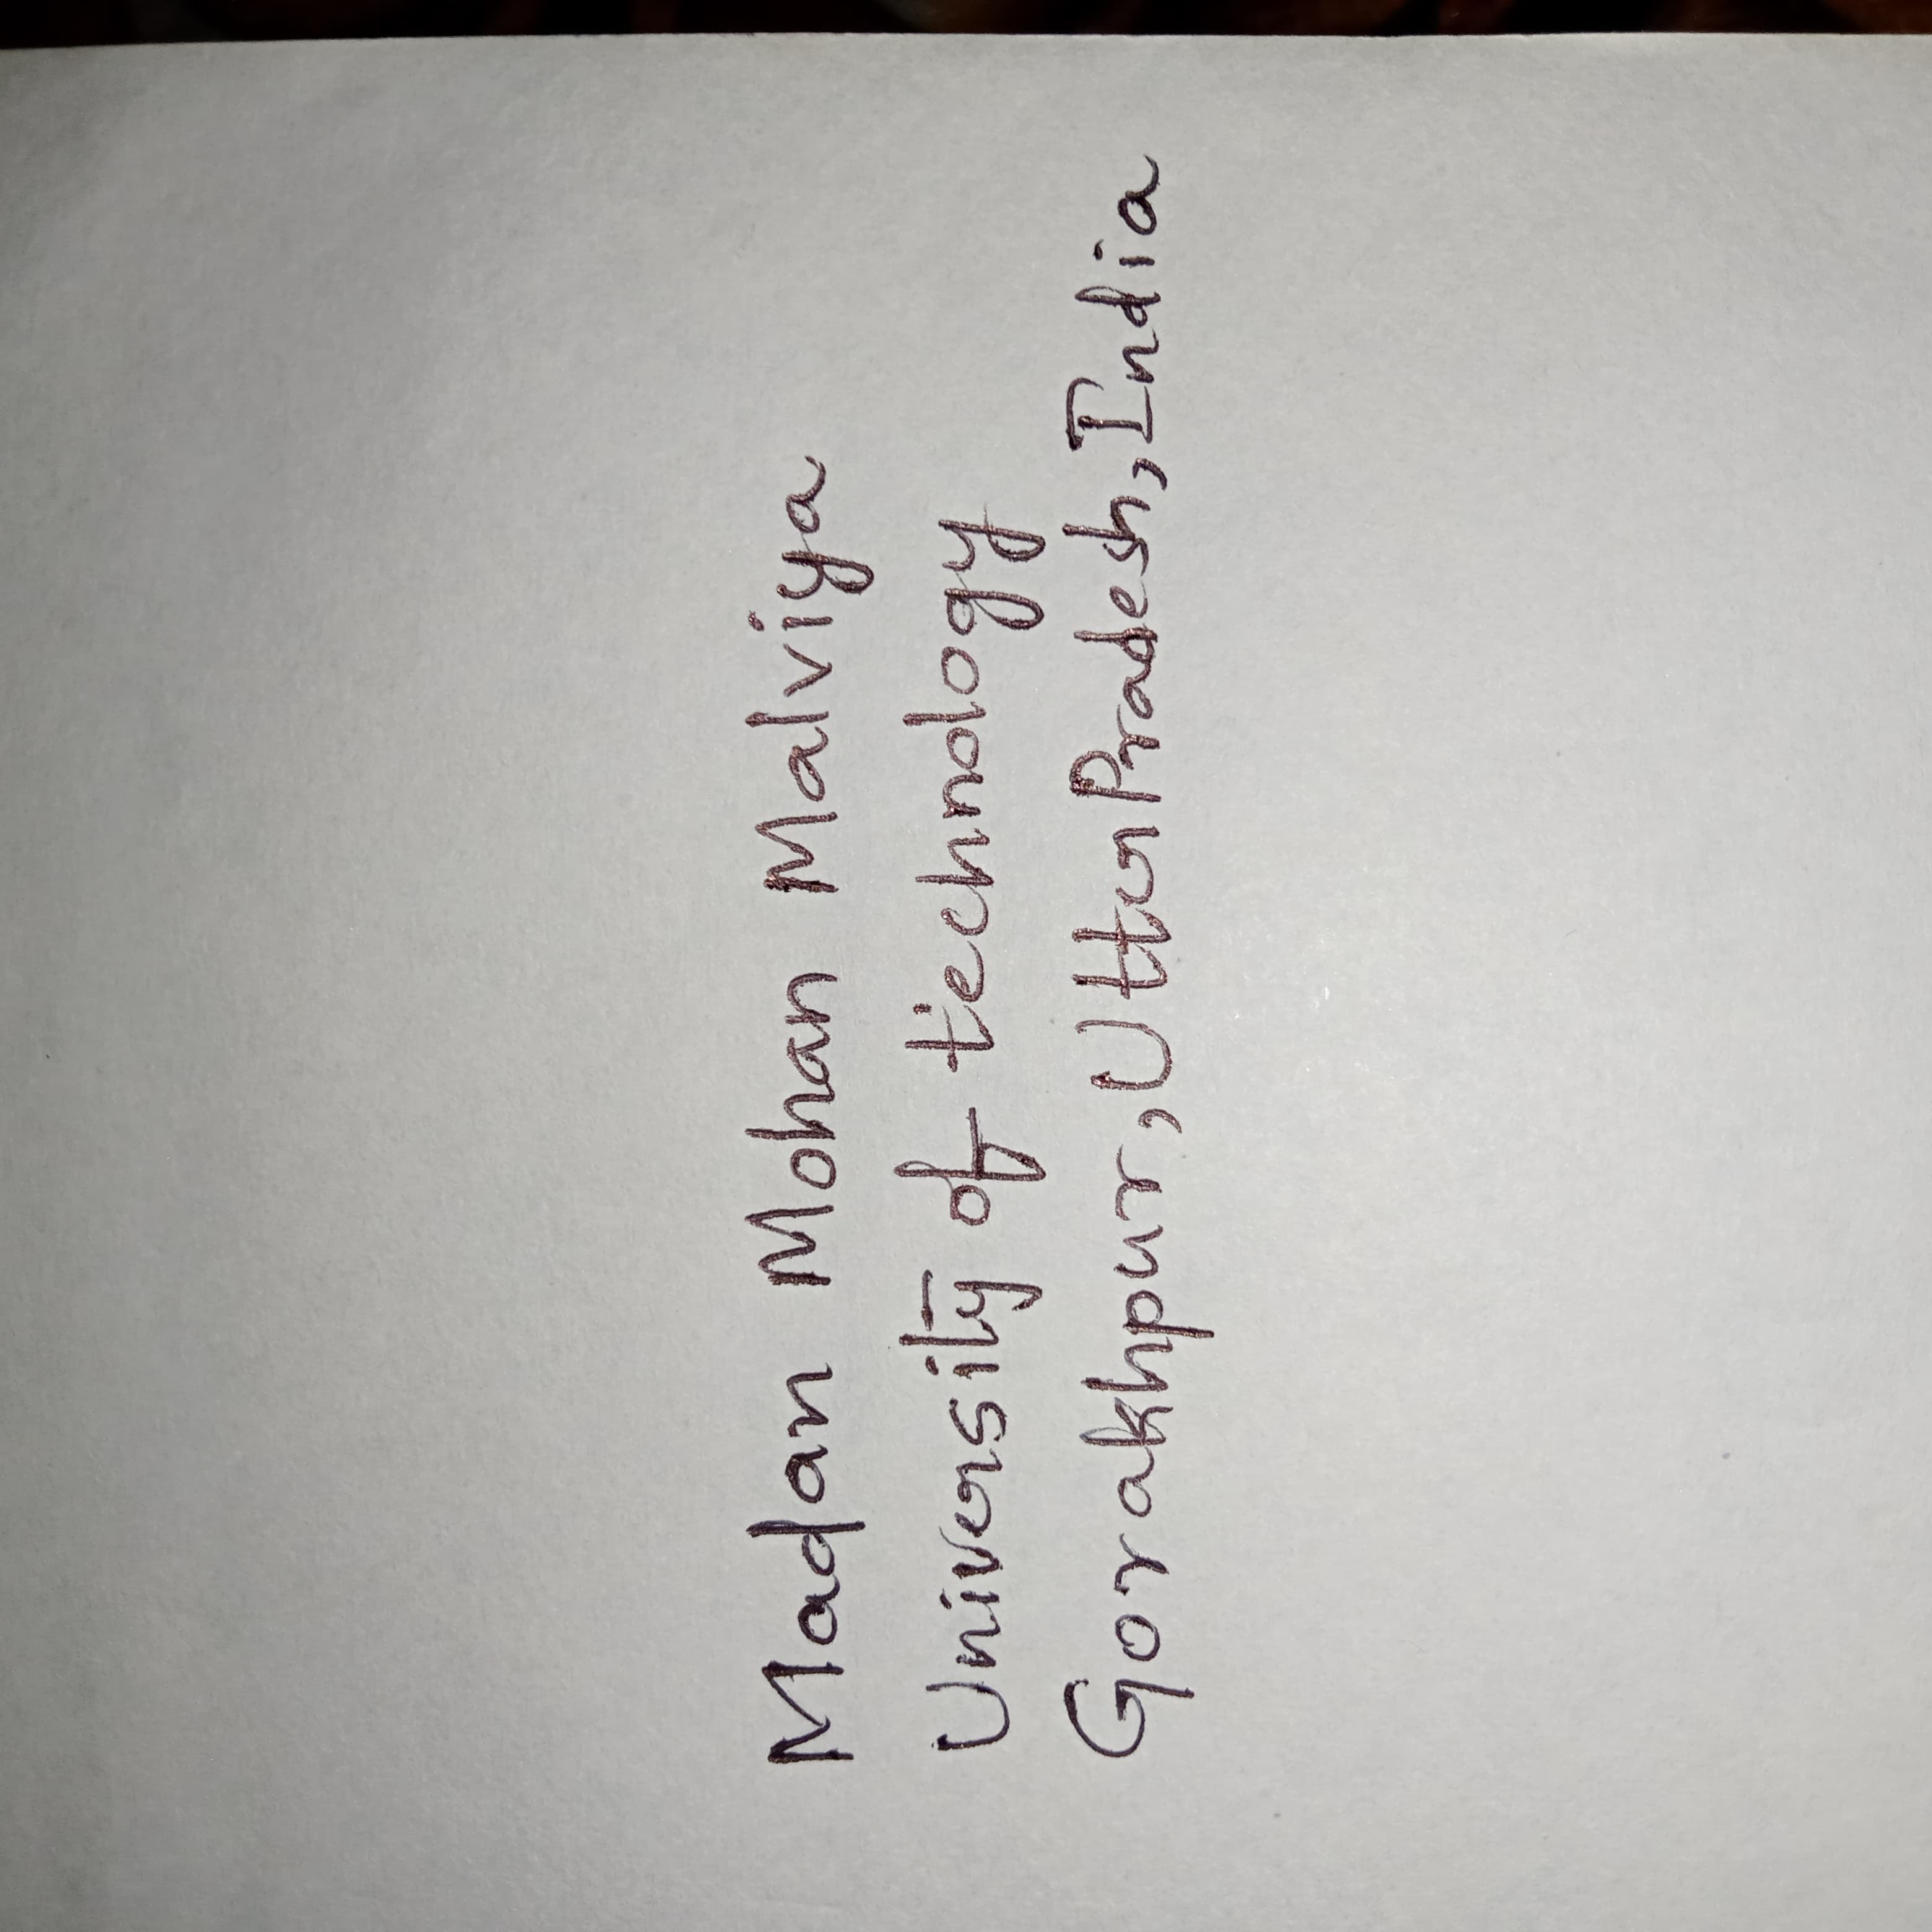 Madan Mohan Malviya
University of technology
Gorakhpur, Utter Pradesh, India